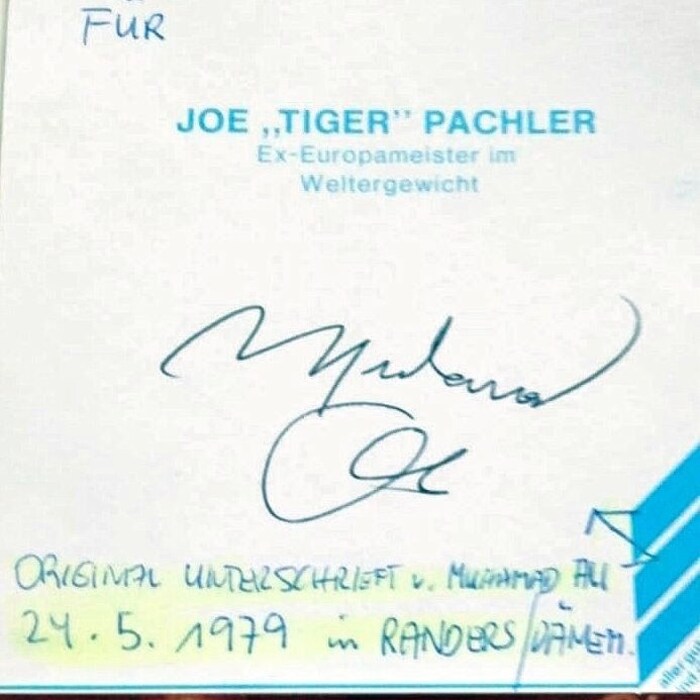 FÜR
JOE „TIGER” PACHLER
Ex-Europameister im
Weltergewicht
Muhammad
Ali
ORIGINAL UNTERSCHRIEFT v. MUHAMAD ALI
24.5.1979 in RANDERS/DÄMEN.